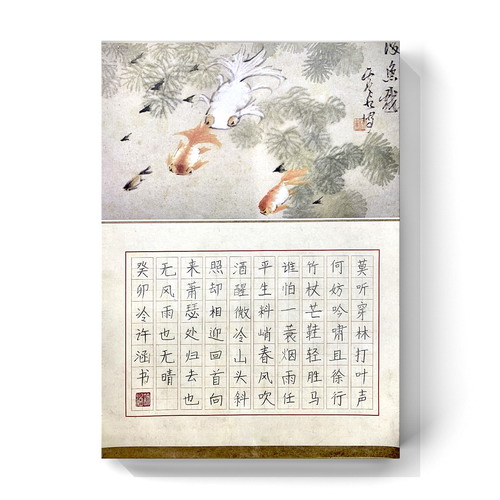 莫听穿林打叶声
何妨吟啸且徐行
竹杖芒鞋轻胜马
谁怕一蓑烟雨任
平生料峭春风吹
酒醒微冷山头斜
照却相迎回首向
来萧瑟处归去也
无风雨也无晴
癸卯冷许涵书